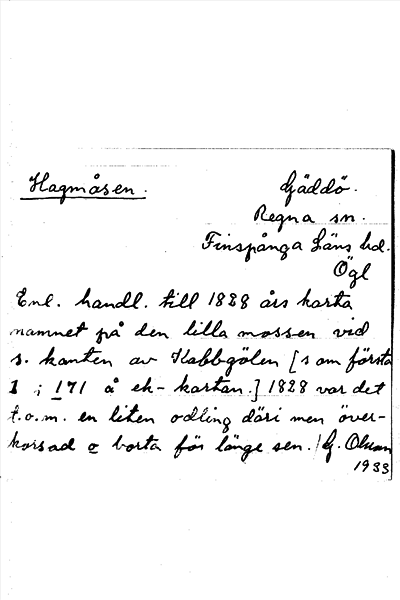 Hagmåsen. Gäddö.
Regna sn.
Finspånga Läns hd.
Ögl
Enl. handl. till 1828 års karta
namnet på den lilla mossen vid
s. kanten av Kabbgölen [som första
1 i 171 å ek-kartan.] 1828 var det
t.o.m. en liten odling däri men över-
korsad o borta för länge sen. / G. Olsson
1933